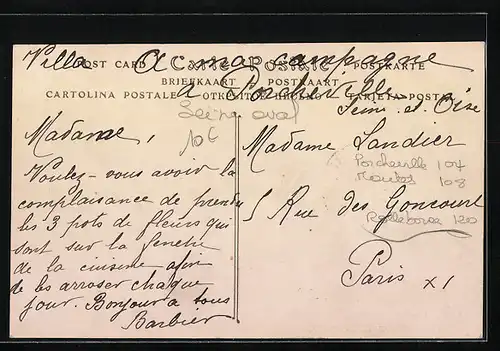 Villa A ma campagne
POST CARD CARTE POSTALE POSTKARTE
à Porcheville
BRIEFKAART POSTKAART
CARTOLINA POSTALE ОТКРЫТОЕ ПИСЬМО TARJETA POSTAL
Seine et Oise
10€
Madame,
Voulez-vous avoir la
complaisance de prendre
les 3 pots de fleurs qui
sont sur la fenetre
de la cuisine afin
de les arroser chaque
jour. Bonjour a tous
Barbier
Madame Landier
Porcheville 104
Mantes 108
5 Rue des Goncourt
Rolleboise 120
Paris XI